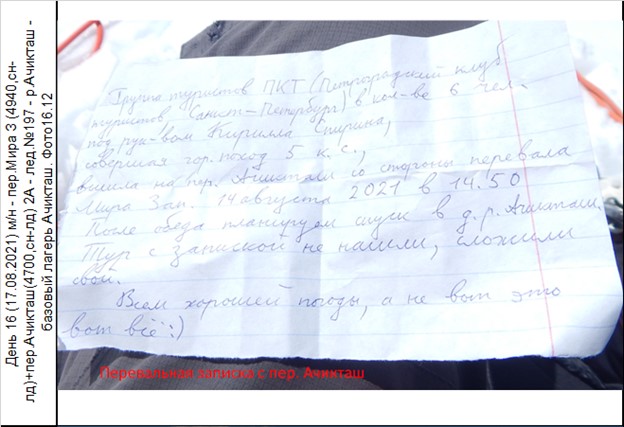 День 16 (17.08.2021) м/н - пер.Мира 3 (4940,сн-
лд)+пер.Ачикташ(4700,сн-лд) 2А - лед.№197 - р.Ачикташ -
базовый лагерь Ачикташ. Фото16.12
Группа туристов ПКТ (Петроградский клуб
туристов Санкт-Петербург) в кол-ве 6 чел.
под рук-вом Кирилла Спирина,
совершая гор. поход 5 к.с.,
вышла на пер. Ачикташ со стороны перевала
Мира Зап. 14 августа 2021 в 14.50
После обеда планируем спуск в д.р. Ачикташ.
Тур с запиской не нашли, сложили
свой.
Всем хорошей погоды, а не вот это
вот всё :)
Перевальная записка с пер. Ачикташ